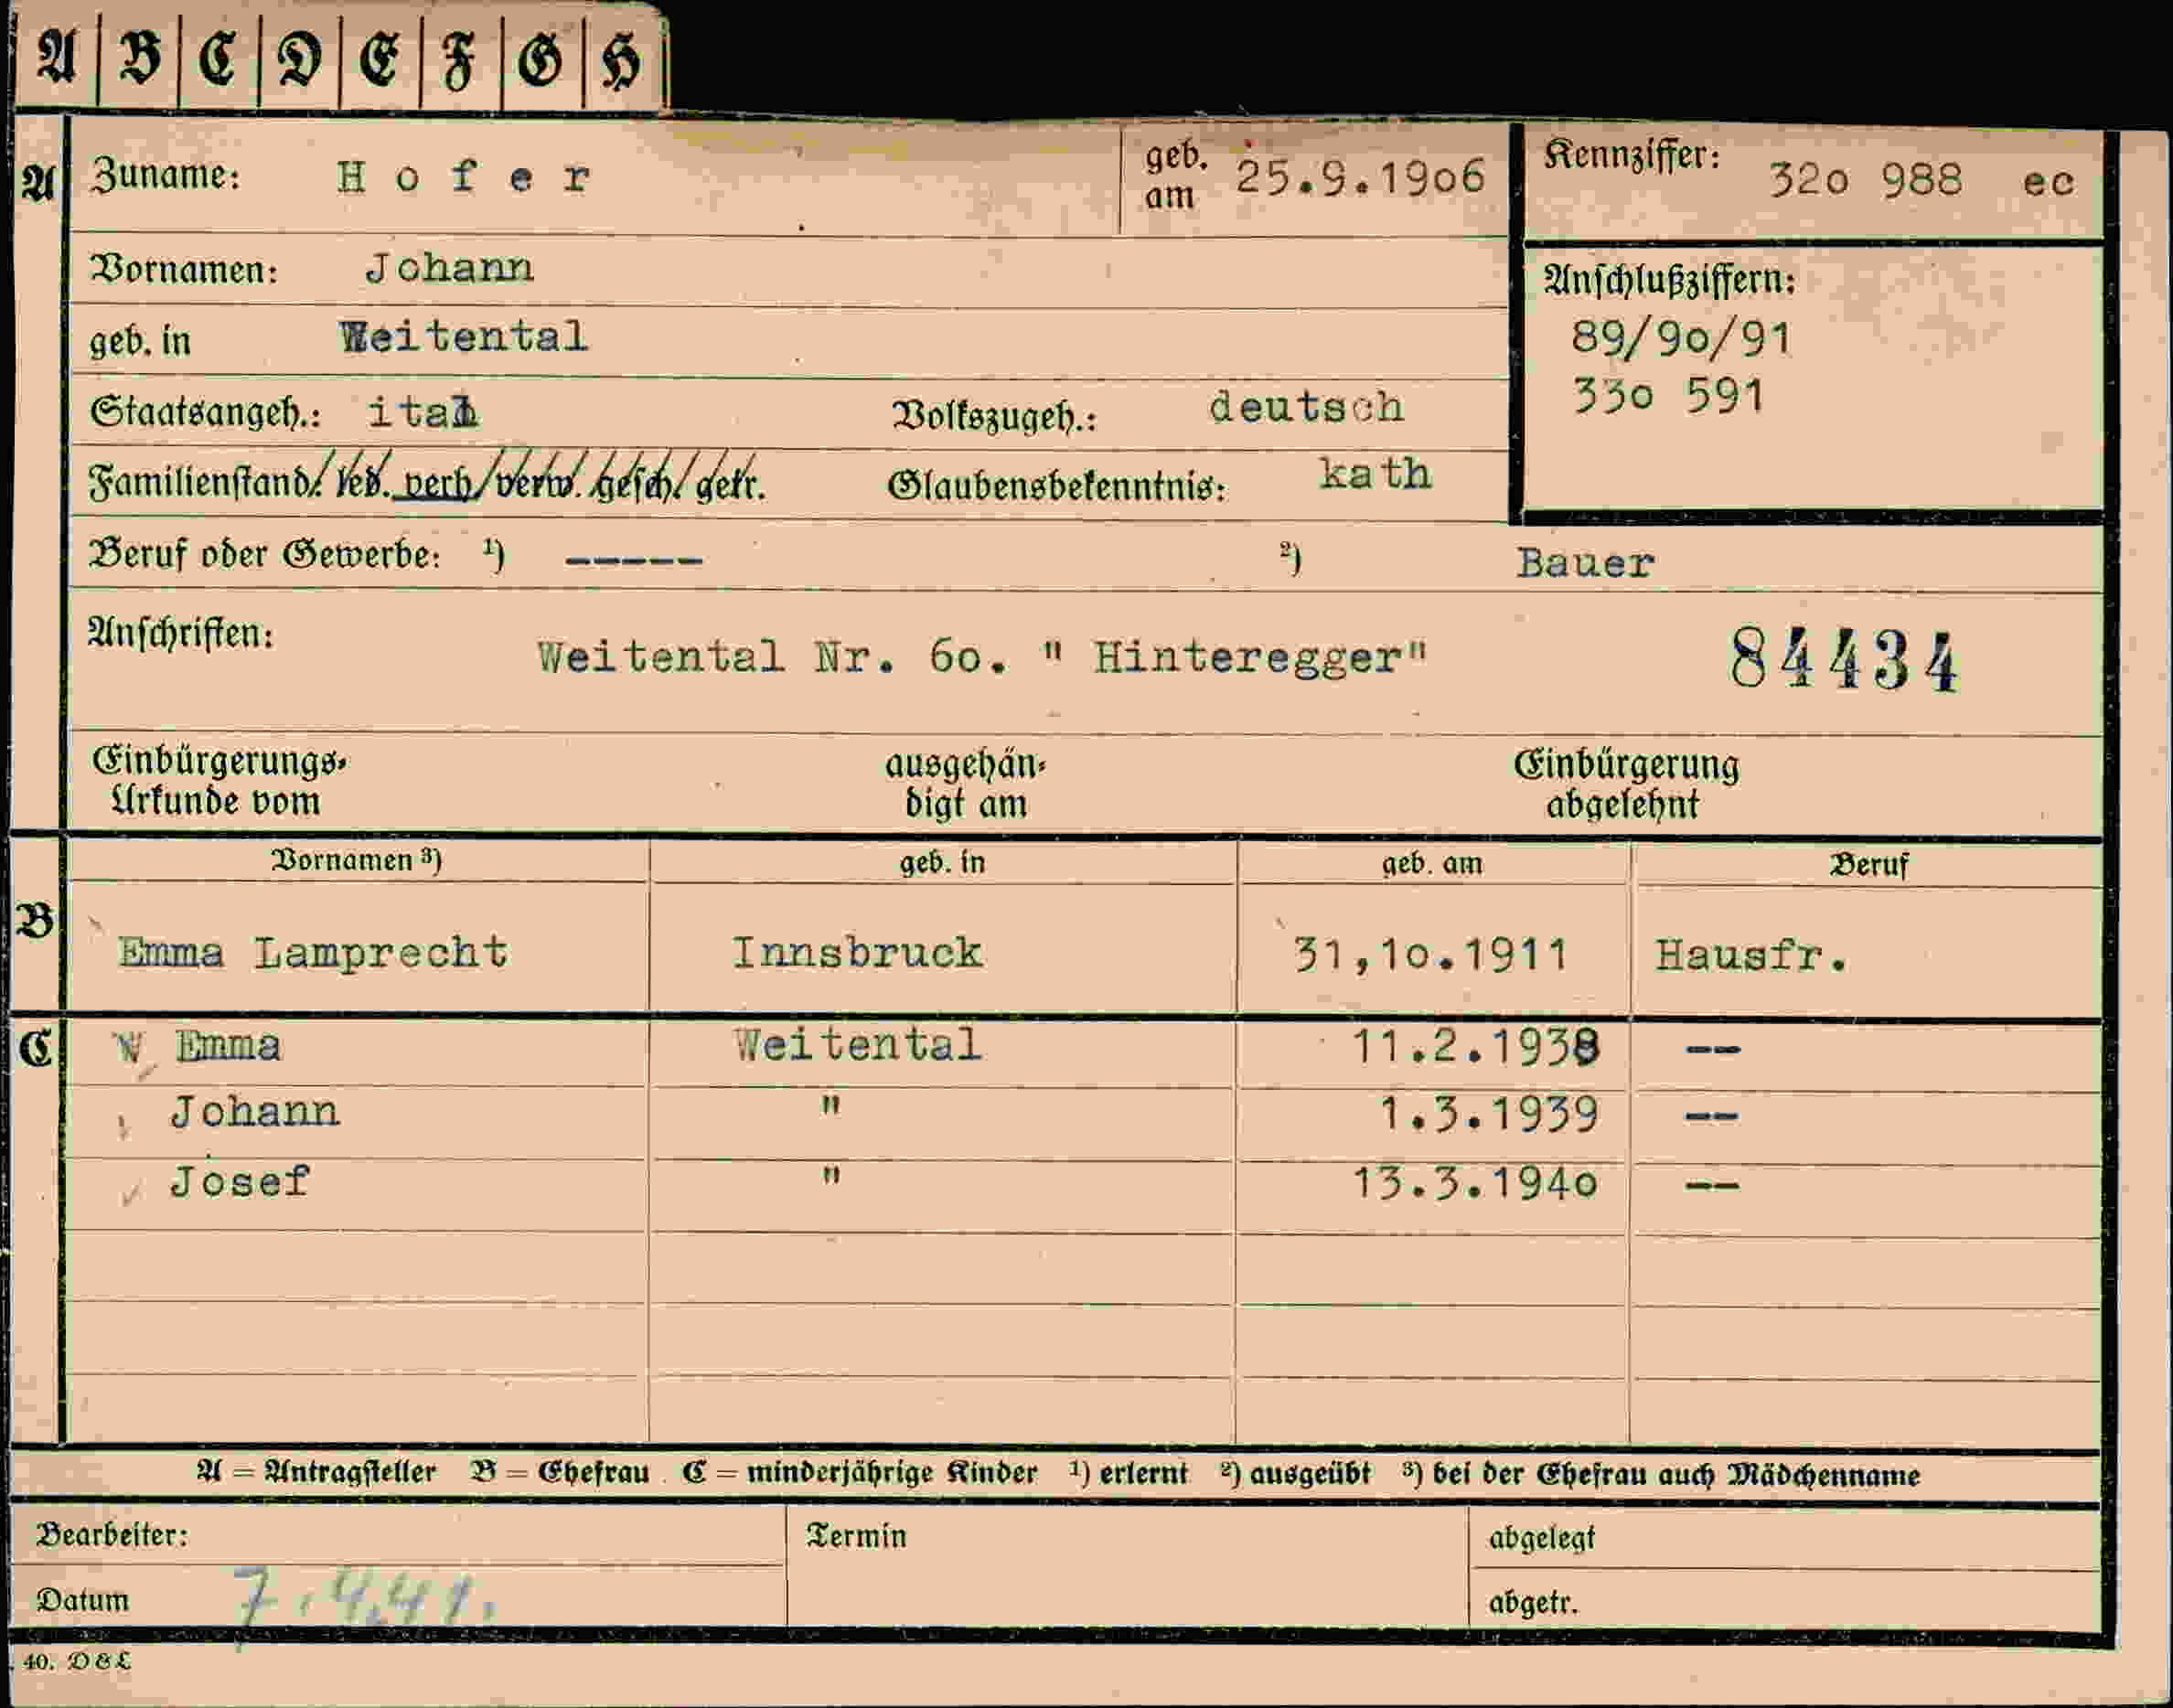 A B C D E F G H
A Zuname: Hofer geb. am 25.9.19o6 Kennziffer: 32o 988 ec
Vornamen: Johann
Anschlußziffern:
89/9o/91
33o 591
geb. in Weitental
Staatsangeh.: ital Volkszugeh.: deutsch
Familienstand: led. verh. verw. gesch. getr. Glaubensbekenntnis: kath
Beruf oder Gewerbe: ¹) ----- ²) Bauer
Anschriften: Weitental Nr. 6o. " Hinteregger" 84434
Einbürgerungs-Urkunde vom ausgehän-digt am Einbürgerung abgelehnt
Vornamen ³) geb. in geb. am Beruf
B Emma Lamprecht Innsbruck 31,1o.1911 Hausfr.
C Emma Weitental 11.2.1938 --
Johann " 1.3.1939 --
Josef " 13.3.194o --
A = Antragsteller B = Ehefrau C = minderjährige Kinder ¹) erlernt ²) ausgeübt ³) bei der Ehefrau auch Mädchenname
Bearbeiter: Termin abgelegt
Datum 7.4.41. abgetr.
40. D & L